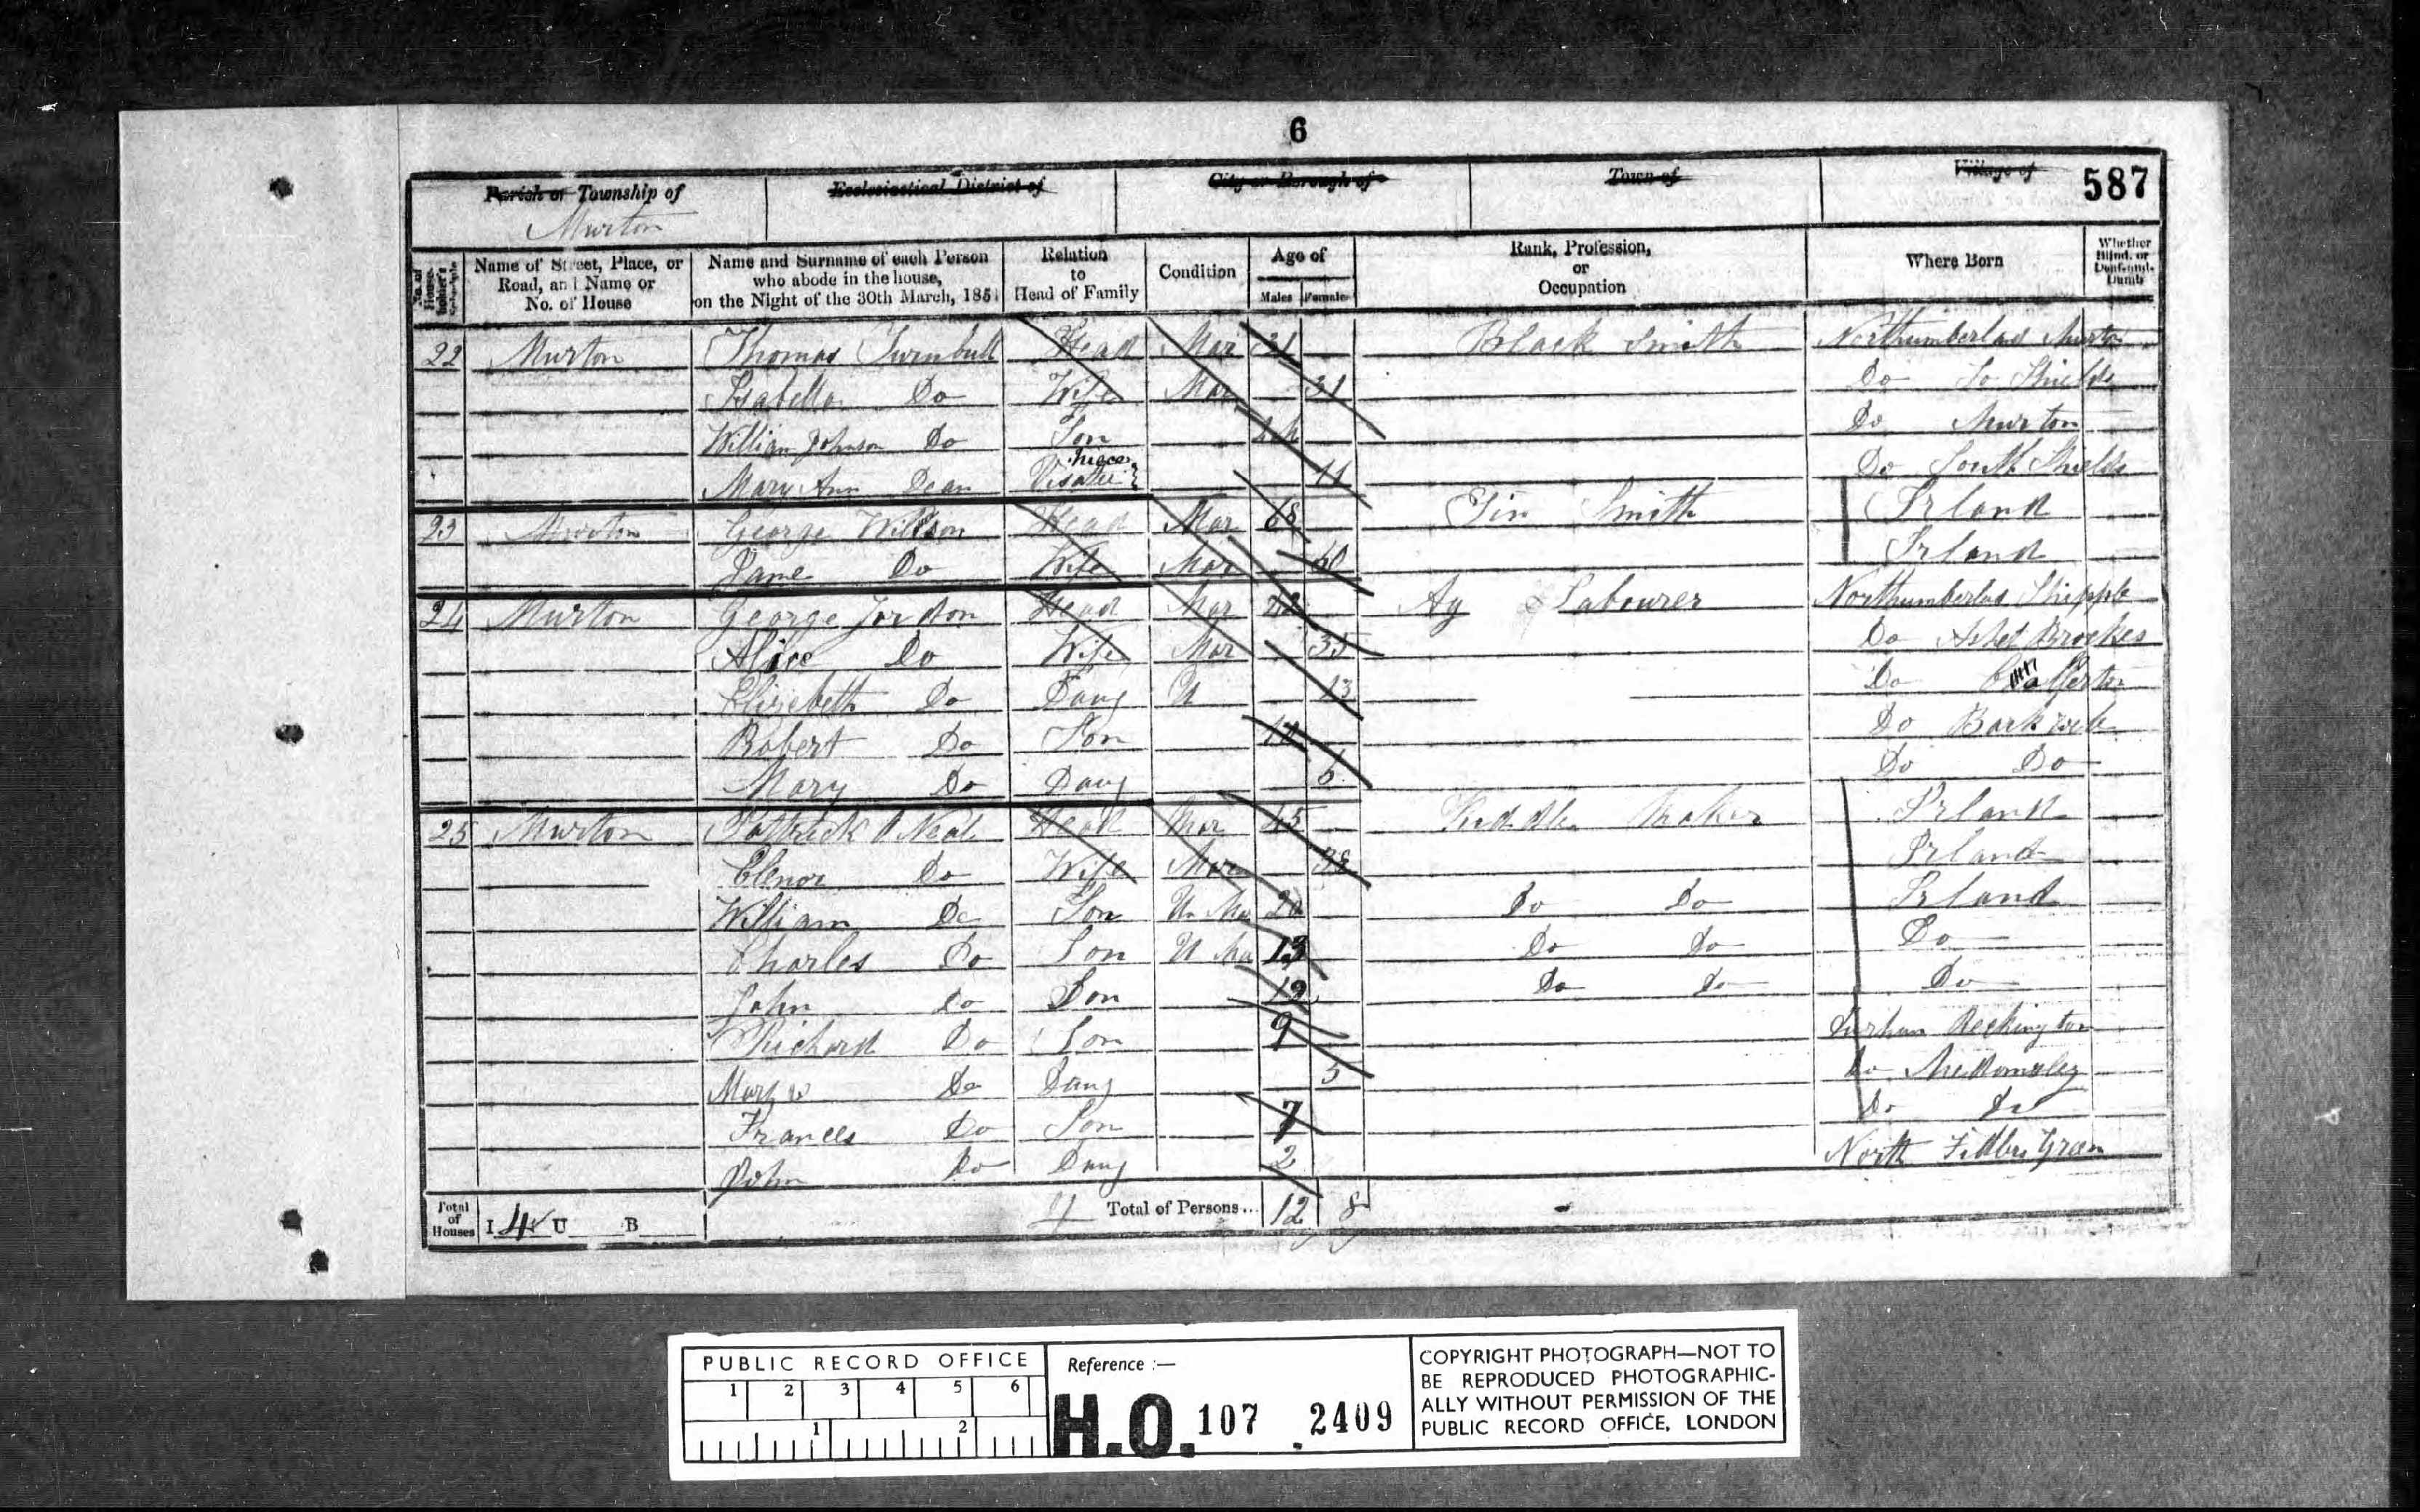 6
Parish or Township of Ecclesiastical District of City or Borough of Town of Village of 587
Murton
No. of House-holder's Schedule Name of Street, Place, or Road, and Name or No. of House Name and Surname of each Person who abode in the house, on the Night of the 30th March, 1851 Relation to Head of Family Condition Age of Males Females Rank, Profession, or Occupation Where Born Whether Blind, or Deaf-and-Dumb
22 Murton Thomas Turnbull Head Mar 31 Black Smith Northumberlad Murton
Isabella Do Wife Mar 31 Do So Shields
William Johnson Do Son Do Murton
Mary Ann Dean Niece 11 Do South Shields
23 Murton George Willson Head Mar 68 Tin Smith Irland
Jane Do Wife Mar 60 Irland
24 Murton George Jordon Head Mar Ag Labourer Northumberlad
Alice Do Wife Mar 35 Do
Elizebeth Do Daug U 13 Do
Robert Do Son Do
Mary Do Daug 6 Do Do
25 Murton Pattrick O Neal Head Mar 45 Maker Irland
Elenor Do Wife Mar 38 Irland
William Do Son 20 Do Do Irland
Charles Do Son Do Do Do
John Do Son Do Do Do
Richard Do Son 9
Do Daug 5 Do Medomsley
Frances Do Son 7 Do Do
John Do Daug 2 North
Total of Houses I 4 U B 4 Total of Persons... 12 8
PUBLIC RECORD OFFICE
1 2 3 4 5 6
1 2
Reference :—
H.O. 107 2409
COPYRIGHT PHOTOGRAPH—NOT TO
BE REPRODUCED PHOTOGRAPHIC-
ALLY WITHOUT PERMISSION OF THE
PUBLIC RECORD OFFICE, LONDON